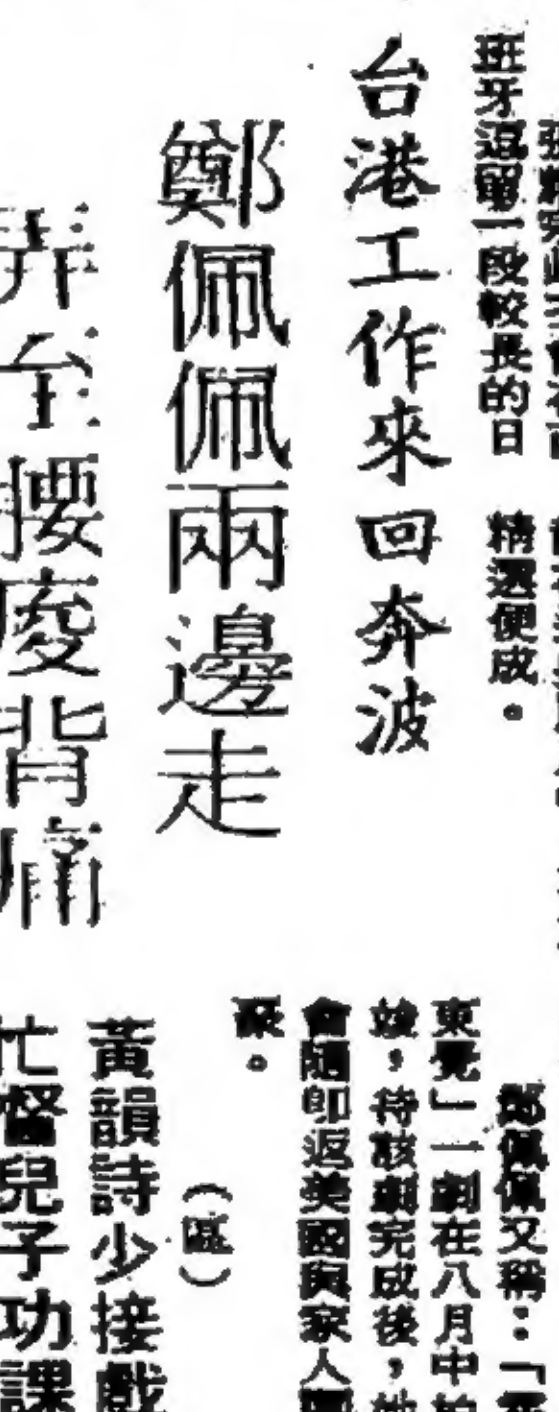 班牙逗留一段較長的日
精選便成。
台港工作來回奔波
鄭佩佩兩邊走
弄至腰痠背痛
鄭佩佩又稱：「
東冕」一劇在八月中拍
竣，待該劇完成後，她
會隨即返美國與家人團
聚。
（區）
黃韻詩少接戲
忙督兒子功課